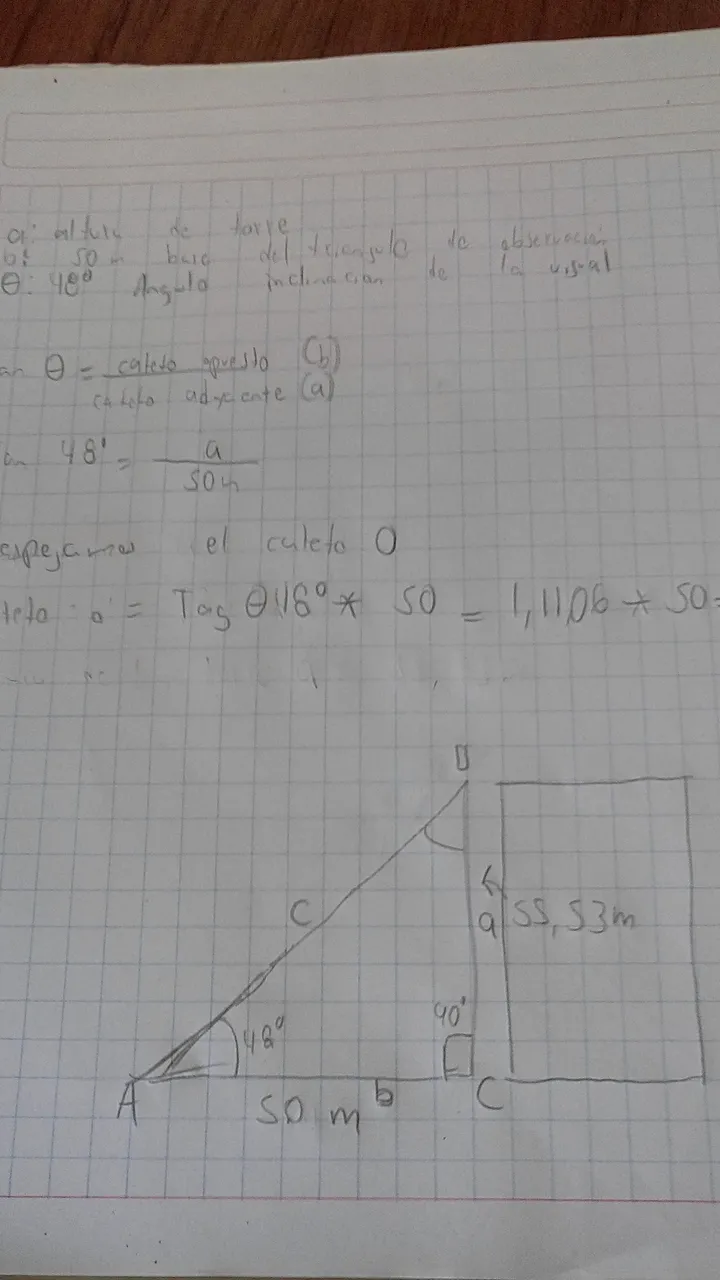 a: altura de torre
b: 50 m base del triangulo de observacion
θ: 48° Angulo inclinacion de la visual
an θ = cateto opuesto (b)
cateto adyacente (a)
48° = a
50m
espejamos el cateto O
teto a = Tag θ48° * 50 = 1,1106 * 50=
B
C
a 55,53m
48°
90°
A
50 m b
C